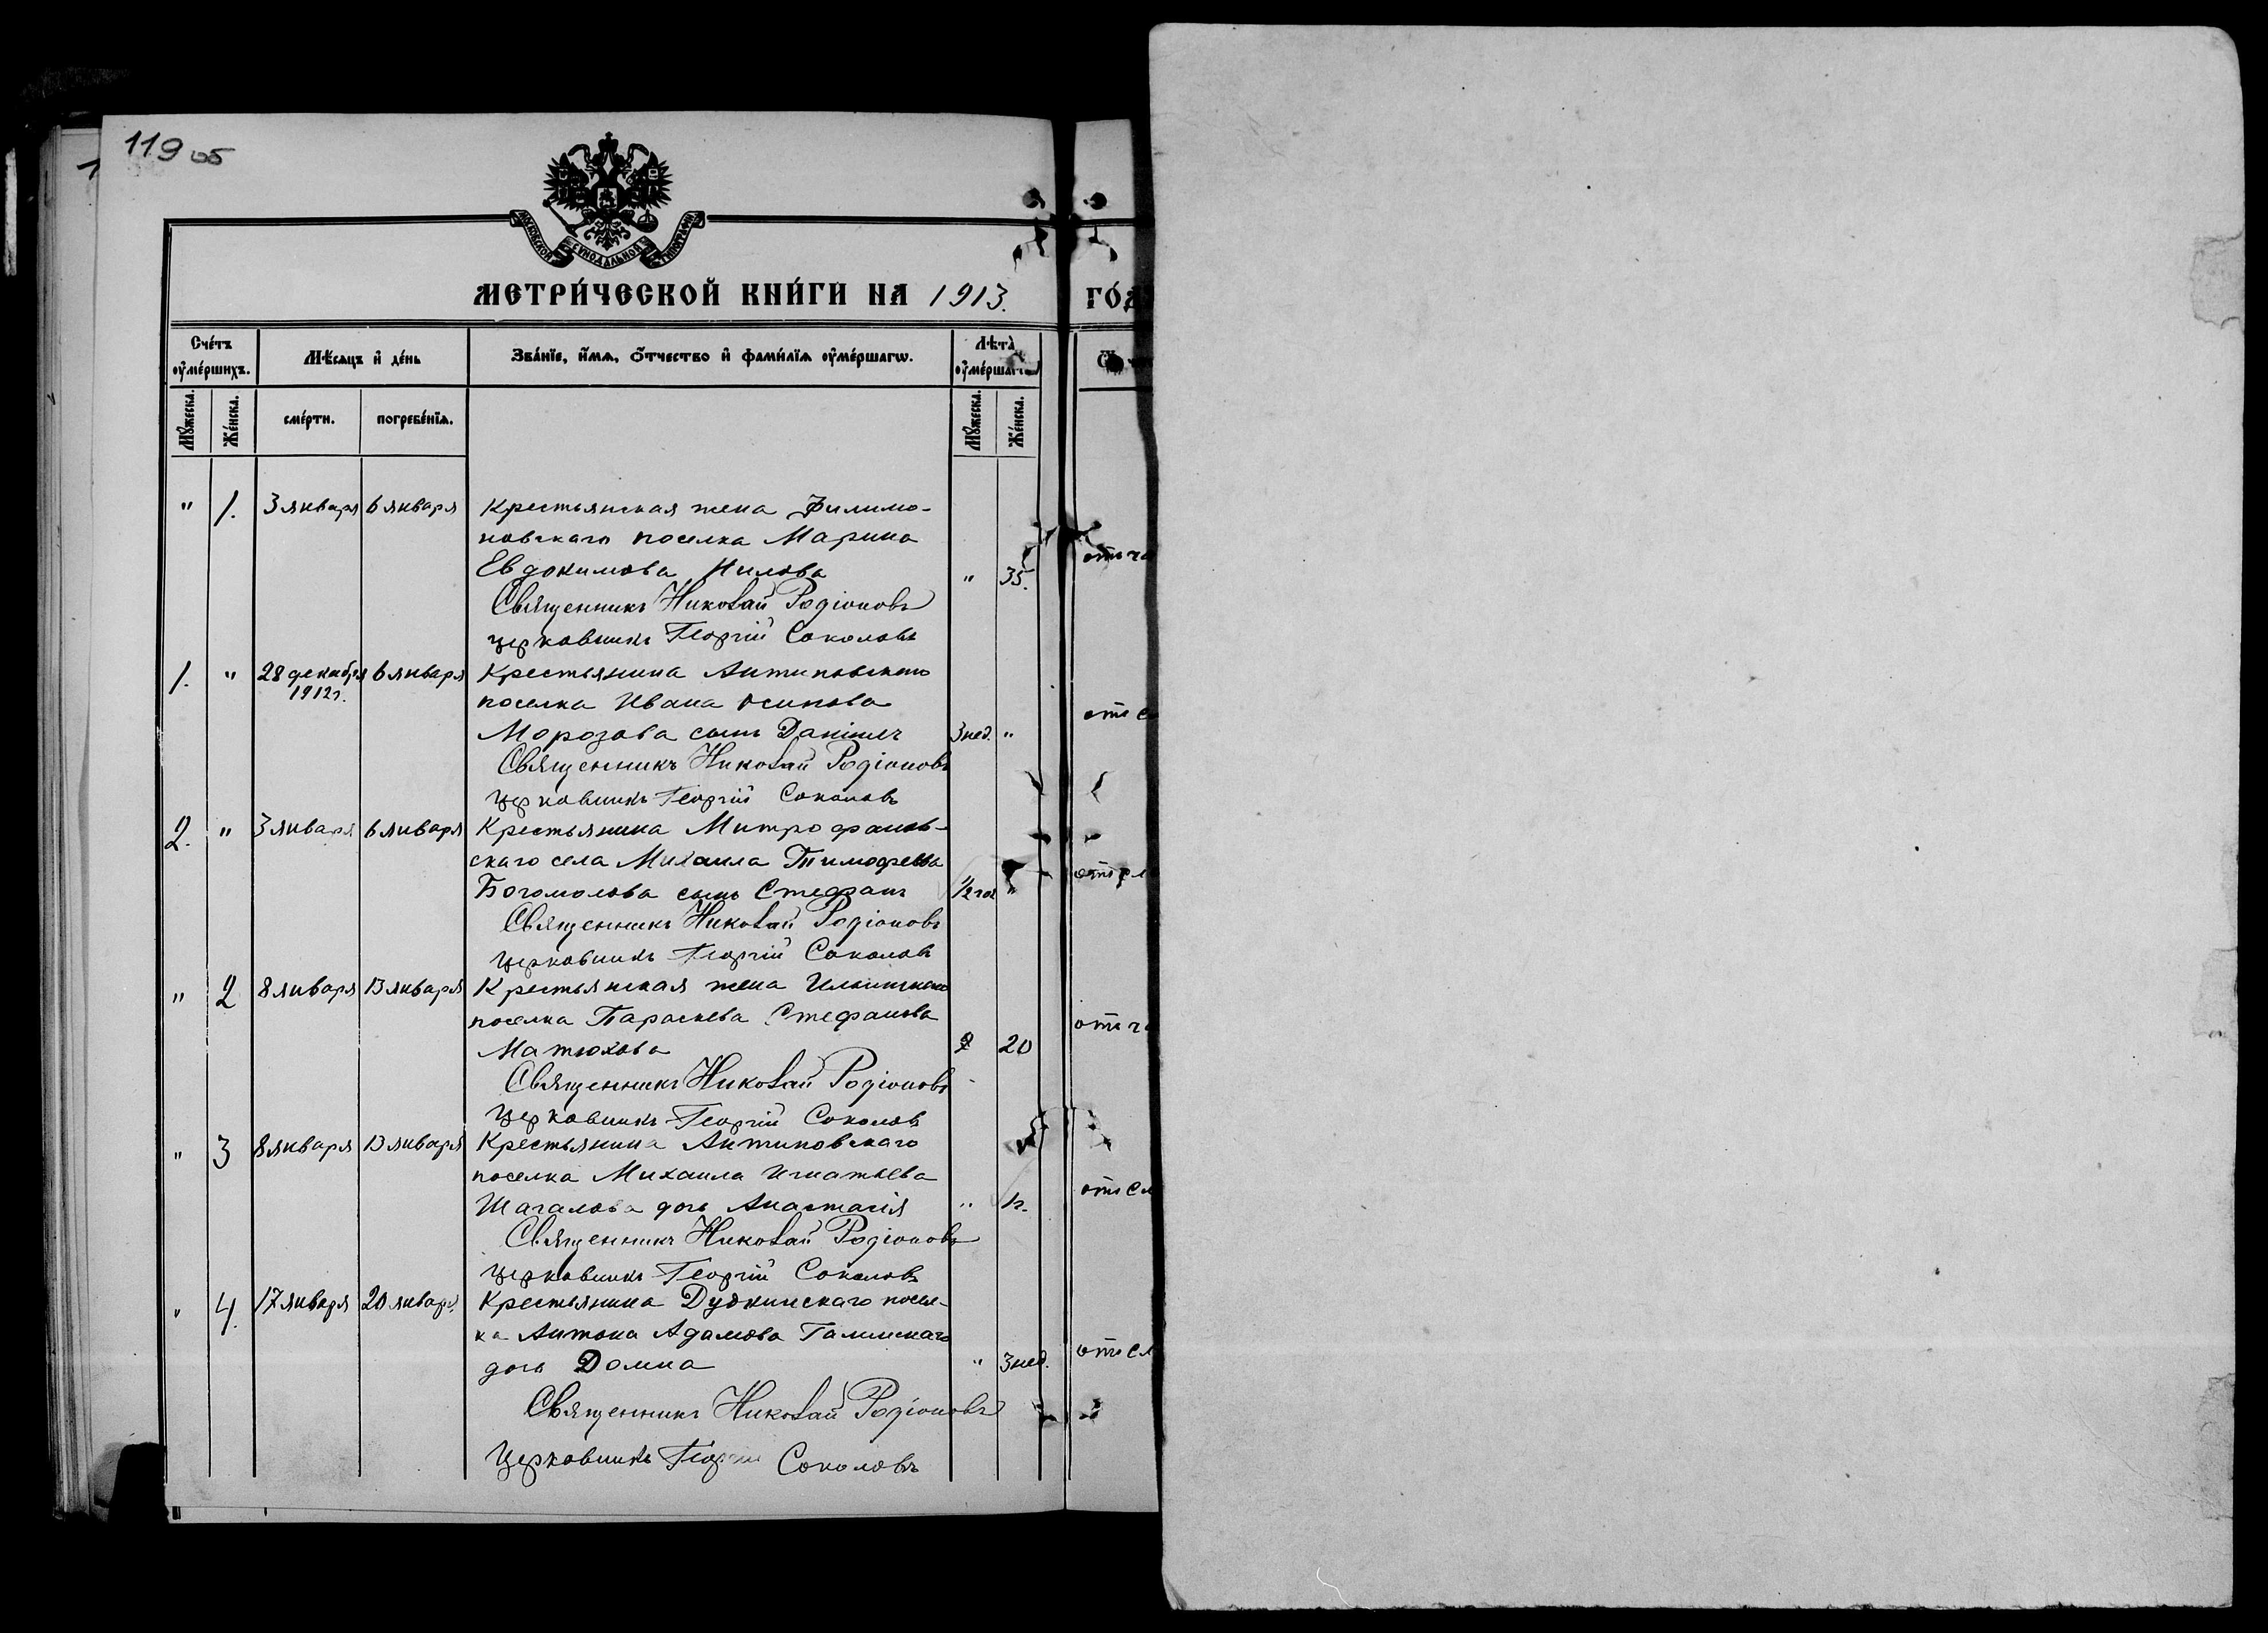 119 об
МОСКОВСКОЙ СѴНОДАЛЬНОЙ ТИПОГРАФІИ
МЕТРИ́ЧЕСКОЙ КНИ́ГИ НА 1913. ГО́Д
Сче́тъ оу҆ме́ршихъ. Мѣ́сяцъ и҆ де́нь Зва́нїе, и҆́мѧ, ѻ҆́тчество и҆ фами́лїѧ оу҆ме́ршагѡ. Лѣта̀ оу҆ме́ршагѡ
Мꙋ́жеска. Же́нска. сме́рти. погребе́нїѧ. Мꙋ́жеска. Же́нска.
" 1. 3 января 6 января Крестьянская жена Филимо-
новскаго поселка Марина
Евдокимова Нилова " 35.
Священникъ Николай Родіоновъ
церковникъ Георгій Соколовъ
1. " 28 декабря 6 января Крестьянина Антиповскаго
1912 г.
поселка Ивана Осипова
Морозова сынъ Даніилъ 3 нед. "
Священникъ Николай Родіоновъ
церковникъ Георгій Соколовъ
2. " 3 января 6 января Крестьянина Митрофанов-
скаго села Михаила Тимофеева
Богомолова сынъ Стефанъ 1/2 год "
Священникъ Николай Родіоновъ
церковникъ Георгій Соколовъ
" 2 8 января 13 января Крестьянская жена Ильинскаго
поселка Параскева Стефанова
Матюхова 20
Священникъ Николай Родіоновъ
церковникъ Георгій Соколовъ
" 3 8 января 13 января Крестьянина Антиповскаго
поселка Михаила Игнатьева
Шагалова дочь Анастасія "
Священникъ Николай Родіоновъ
церковникъ Георгій Соколовъ
" 4. 17 января 20 января Крестьянина Дудкинскаго посел-
ка Антона Адамова Галинскаго
дочь Домна " 3 нед.
Священникъ Николай Родіоновъ
церковникъ Георгій Соколовъ